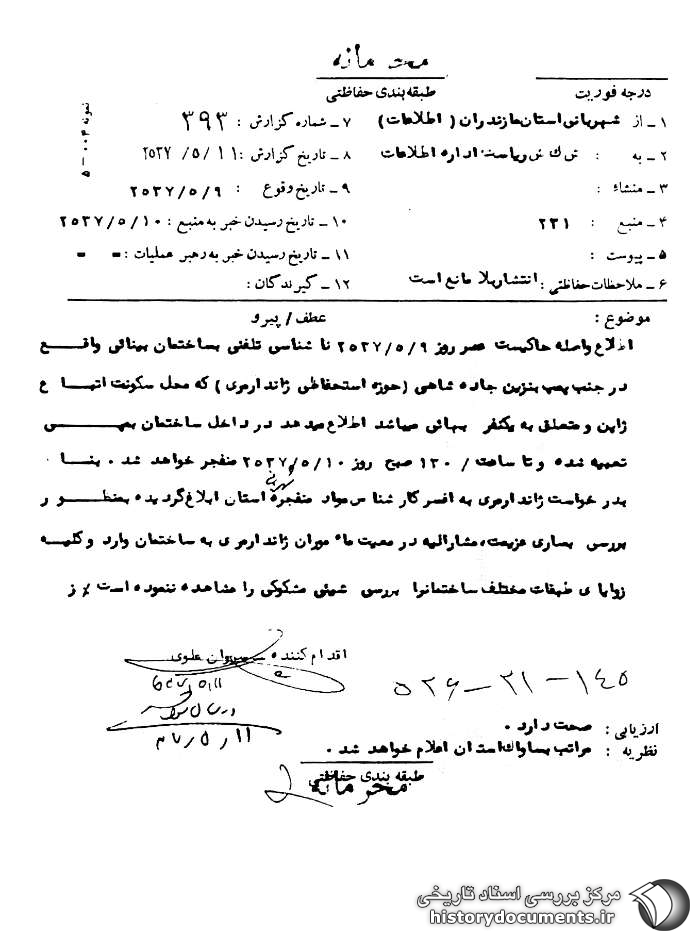 محرمانه
درجه فوریت
طبقه‌بندی حفاظتی
نمونه ۰۰۴ – ۵
۱ – از شهربانی استان مازندران ( اطلاعات )
۲ – به : ش ک ش ریاست اداره اطلاعات
۳ – منشاء :
۴ – منبع : ۲۳۱
۵ – پیوست :
۶ – ملاحظات حفاظتی : انتشار بلا مانع است
۷ – شماره گزارش : ۳۹۳
۸ – تاریخ گزارش : ۲۵۳۷/۵/۱۱
۹ – تاریخ وقوع : ۲۵۳۷/۵/۹
۱۰ – تاریخ رسیدن خبر به منبع : ۲۵۳۷/۵/۱۰
۱۱ – تاریخ رسیدن خبر به رهبر عملیات : - -
۱۲ – گیرندگان :
موضوع : عطف / پیرو
اطلاع واصله حاکیست عصر روز ۲۵۳۷/۵/۹ نا شناسی تلفنی بساختمان بینائی واقع
در جنب پمپ بنزین جاده شاهی (حوزه استحفاظی ژاندارمری ) که محل سکونت اتباع
ژاپن و متعلق به یکنفر بهائی میباشد اطلاع میدهد در داخل ساختمان بمبی
تعبیه شده و تا ساعت / ۱۳۰ صبح روز ۲۵۳۷/۵/۱۰ منفجر خواهد شد . بنا
بدرخواست ژاندارمری به افسر کارشناس مواد منفجره شهربانی استان ابلاغ گردیده بمنظور
بررسی بساری عزیمت، مشارالیه در معیت ماموران ژاندارمری به ساختمان وارد و کلیه
زوایای طبقات مختلف ساختمانرا بررسی شیئی مشکوکی را مشاهده ننموده است ٪ ز
اقدام کننده سروان علوی
۵۲۶–۲۱–۱۴۵
۱۱/۵/۳۷
ارزیابی : صحت دارد .
نظریه : مراتب بساواک استان اعلام خواهد شد .
طبقه بندی حفاظتی
محرمانه
مرکز بررسی اسناد تاریخی
historydocuments.ir